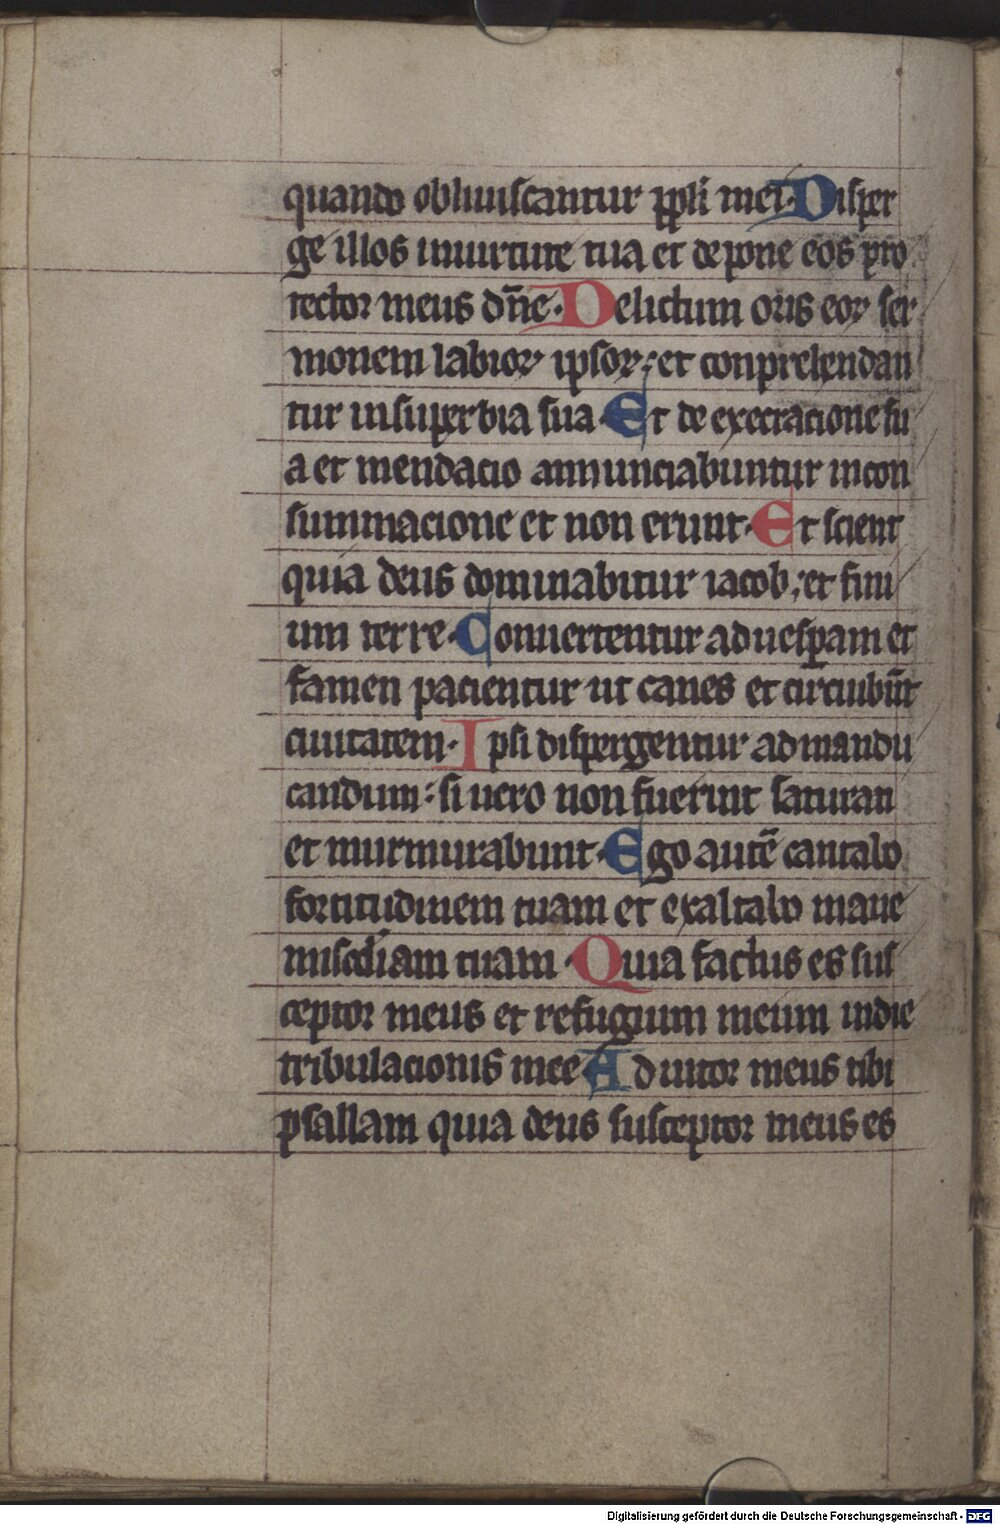 quando obliuiscantur ppl̄i mei. Disper
ge illos inuirtute tua et depone eos pro
tector meus dn̄e. Delictum oris eoꝝ ser
monem labioꝝ ipsoꝝ: et conprehendan
tur insuperbia sua. Et de execracione su
a et mendacio annunciabuntur incon
summacione et non erunt. Et scient
quia deus dominabitur iacob: et fini
um terre. Conuertentur aduesꝑam et
famen pacientur ut canes et circuibūt
ciuitatem. Ipsi dispergentur admandu
candum: si uero non fuerint saturati
et murmurabunt. Ego autē cantabo
fortitudinem tuam et exaltabo mane
misc̄diam tuam. Quia factus es sus
ceptor meus et refugium meum indie
tribulacionis mee. Adiutor meus tibi
psallam quia deus susceptor meus es
Digitalisierung gefördert durch die Deutsche Forschungsgemeinschaft - DFG